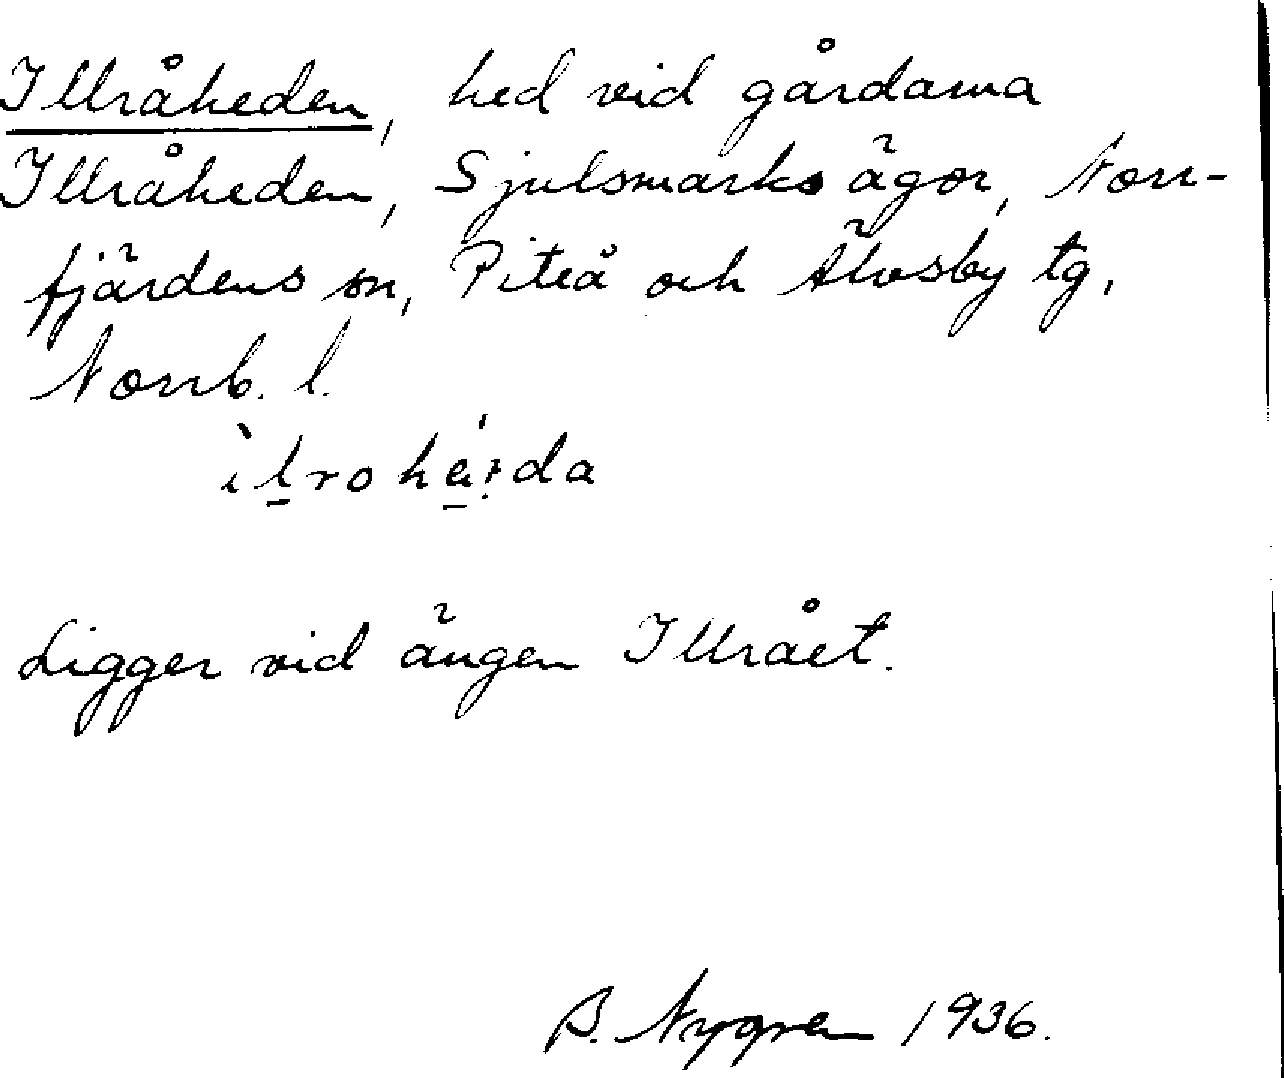 Illråheden, hed vid gårdarna
Illråheden, Sjulsmarks ägor, Norr-
fjärdens sn, Piteå och Älvsby tg,
Norrb. l.
Ligger vid ängen Illrået.
B. Nygren 1936.